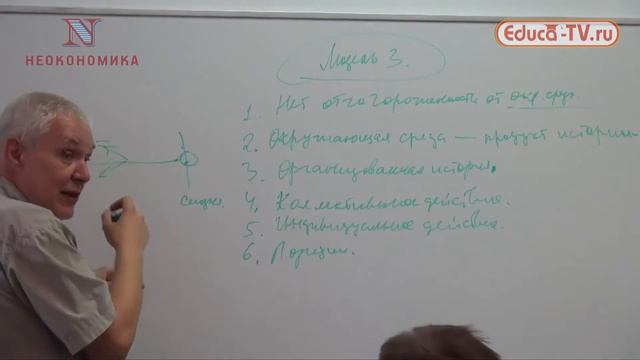 НЕОКОНОМИКА
EDUCA-TV.ru
Модель 3.
1. Нет отгороженности от окр. среды.
2. Окружающая среда — продукт истории
3. Организованная история.
4. Коллективное действие.
5. Индивидуальное действие.
6.